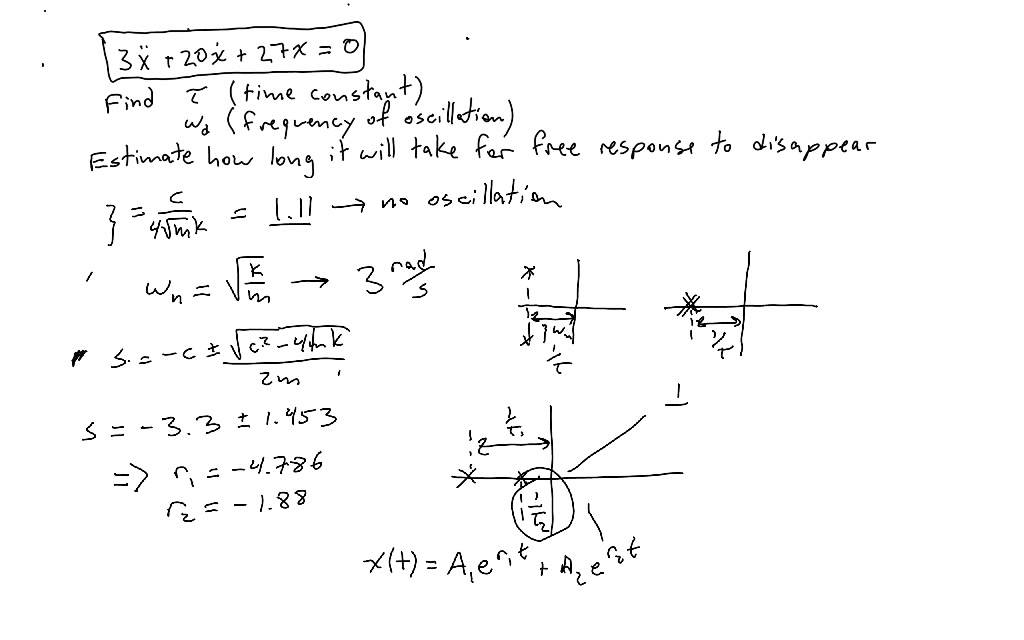 3ẍ + 20ẋ + 27x = 0
Find τ (time constant)
ω_d (frequency of oscillation)
Estimate how long it will take for free response to disappear
ζ = c/4√mk = 1.11 → no oscillation
ω_n = √k/m → 3 rad/s
s = -c ± √c²-4mk / 2m
s = -3.3 ± 1.453
=> r₁ = -4.786
r₂ = -1.88
ζω_n
1/τ
1/τ
1/τ₁
1/τ₂
x(t) = A₁e^r₁t + A₂e^r₂t